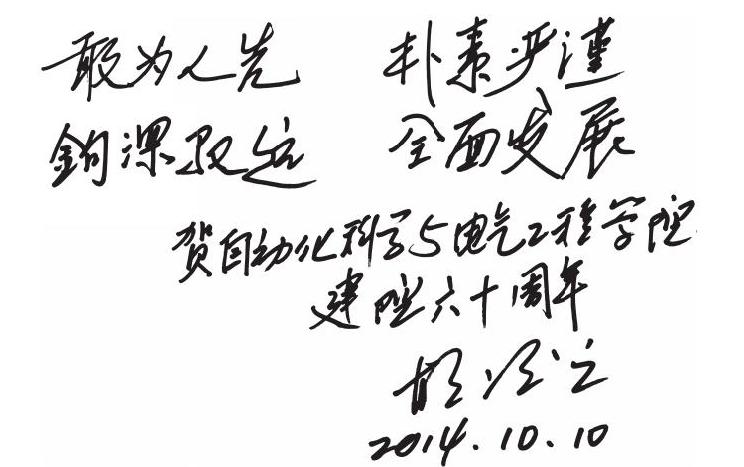 敢为人先 朴素严谨
钩深致远 全面发展
贺自动化科学与电气工程学院
建院六十周年
2014.10.10